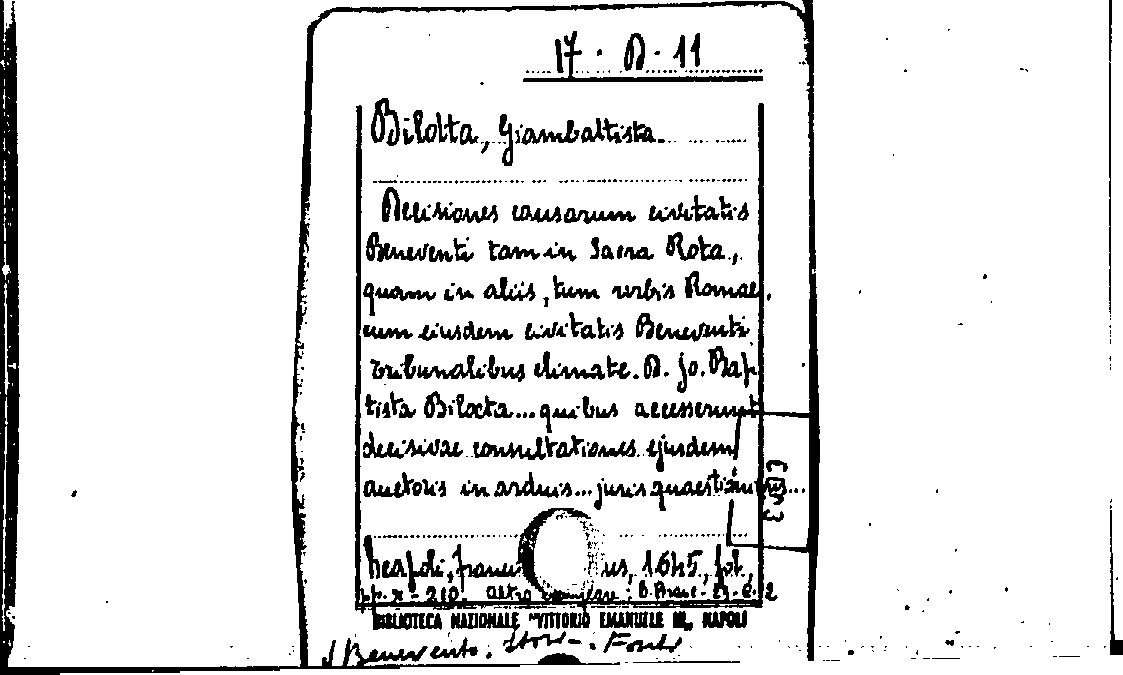 17 · D · 11
Bilotta, Giambattista.
Decisiones causarum civitatis
Beneventi tam in Sacra Rota,
quam in aliis, tum urbis Romae,
cum eiusdem civitatis Beneventi
tribunalibus elimate. D. Jo. Bap
tista Bilocta... quibus accesserunt
decisivae consultationes ejusdem
auctoris in arduis... juris quaestionibus...
Neapoli, 1645, fol.
pp. X - 210. altro esemplare:
BIBLIOTECA NAZIONALE "VITTORIO EMANUELE III„ NAPOLI
Benevento. Storia - Fonti